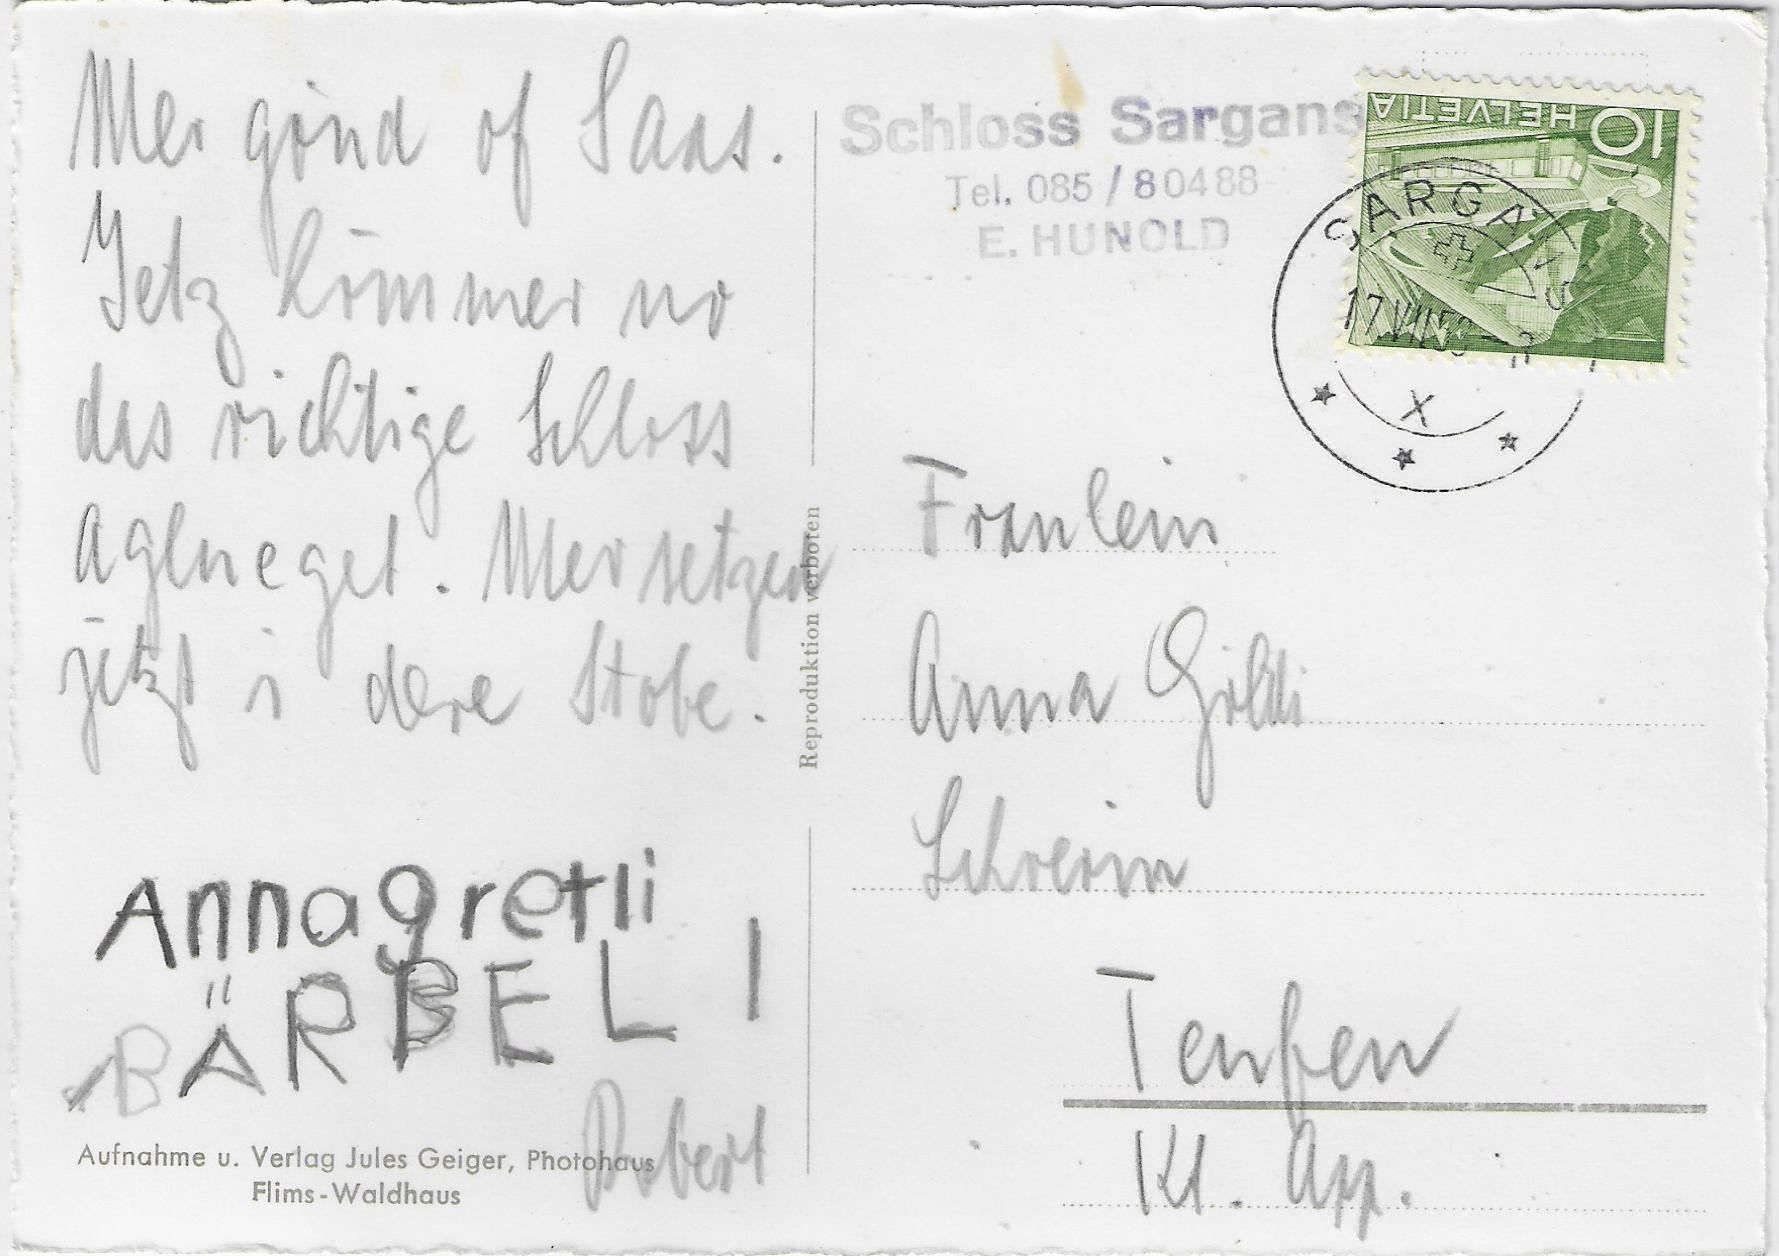 Mer gönd of Saas.
Jetz kömmer no
das richtige Schloss
aglueget. Mer setzen
jetzt i dere Stobe.
Annagretli
BÄRBELI
Robert
Aufnahme u. Verlag Jules Geiger, Photohaus
Flims-Waldhaus
Reproduktion verboten
Schloss Sargans
Tel. 085/80488
E. HUNOLD
HELVETIA
10
SARGANS
17.VII.5
X
Fräulein
Anna Göldi
Teufen
Kt. App.